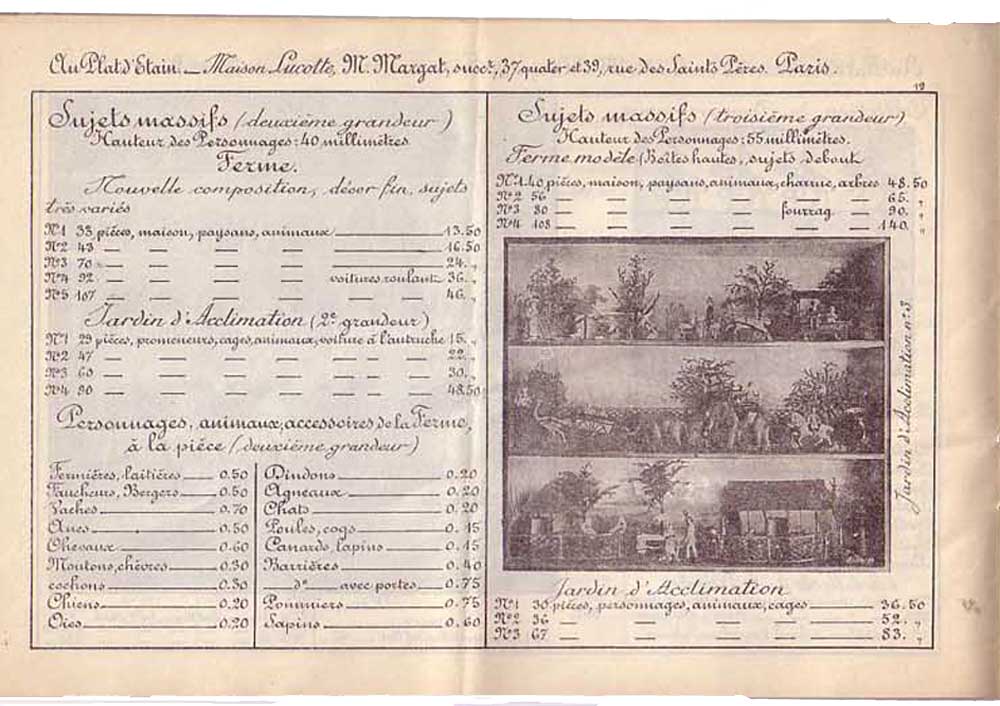 Au Plat d'Etain _ Maison Lucotte, M. Margat, succr, 37 quater et 39, rue des Saints Pères. Paris.
19
Sujets massifs (deuxième grandeur)
Hauteur des Personnages: 40 millimètres
Ferme.
Nouvelle composition, décor fin, sujets
très variés
No1 33 pièces, maison, paysans, animaux 13.50
No2 43 — — — — 16.50
No3 70 — — — — 24. "
No4 92. — — — voitures roulant. 36. "
No5 107 — — — — — 46. "
Jardin d'Acclimation (2e grandeur)
No1 29 pièces, promeneurs, cages, animaux, voiture à l'autruche 15. "
No2 47 — — — — — — 22. "
No3 60 — — — — — — 30. "
No4 90 — — — — — — 48.50
Personnages, animaux, accessoires de la Ferme,
à la pièce (deuxième grandeur)
Fermières, laitières 0.50
Faucheurs, Bergers 0.50
Vaches 0.70
Anes 0.50
Chevaux 0.60
Moutons, chèvres 0.30
cochons 0.30
Chiens 0.20
Oies 0.20
Dindons 0.20
Agneaux 0.20
Chats 0.20
Poules, coqs 0.15
Canards, lapins 0.15
Barrières 0.40
do avec portes 0.75
Pommiers 0.75
Sapins 0.60
Sujets massifs (troisième grandeur)
Hauteur des Personnages: 55 millimètres.
Ferme modèle (Boîtes hautes, sujets debout
No1. 40 pièces, maison, paysans, animaux, charrue, arbres 48.50
No2 56 — — — — — 65. "
No3 80 — — — fourrag. — 90. "
No4 108 — — — — — 140. "
Jardin d'Acclimation no 3
Jardin d'Acclimation
No1 30 pièces, personnages, animaux, cages 36.50
No2 36 — — — — 52. "
No3 67 — — — — 83. "